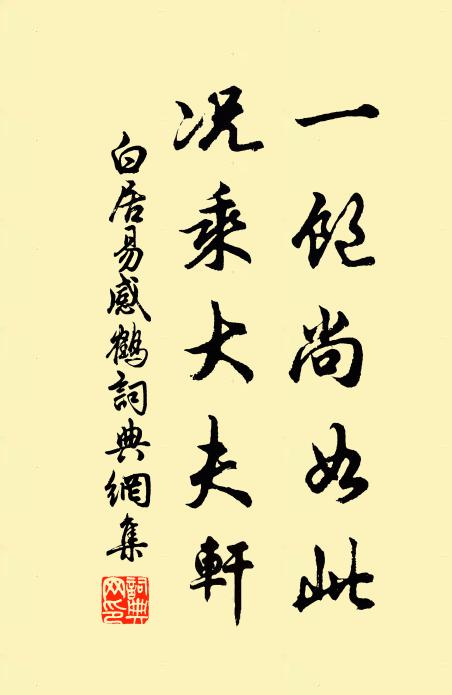 一飽尚如此
況乘大夫軒
白居易感鶴詞典網集
詞典網印